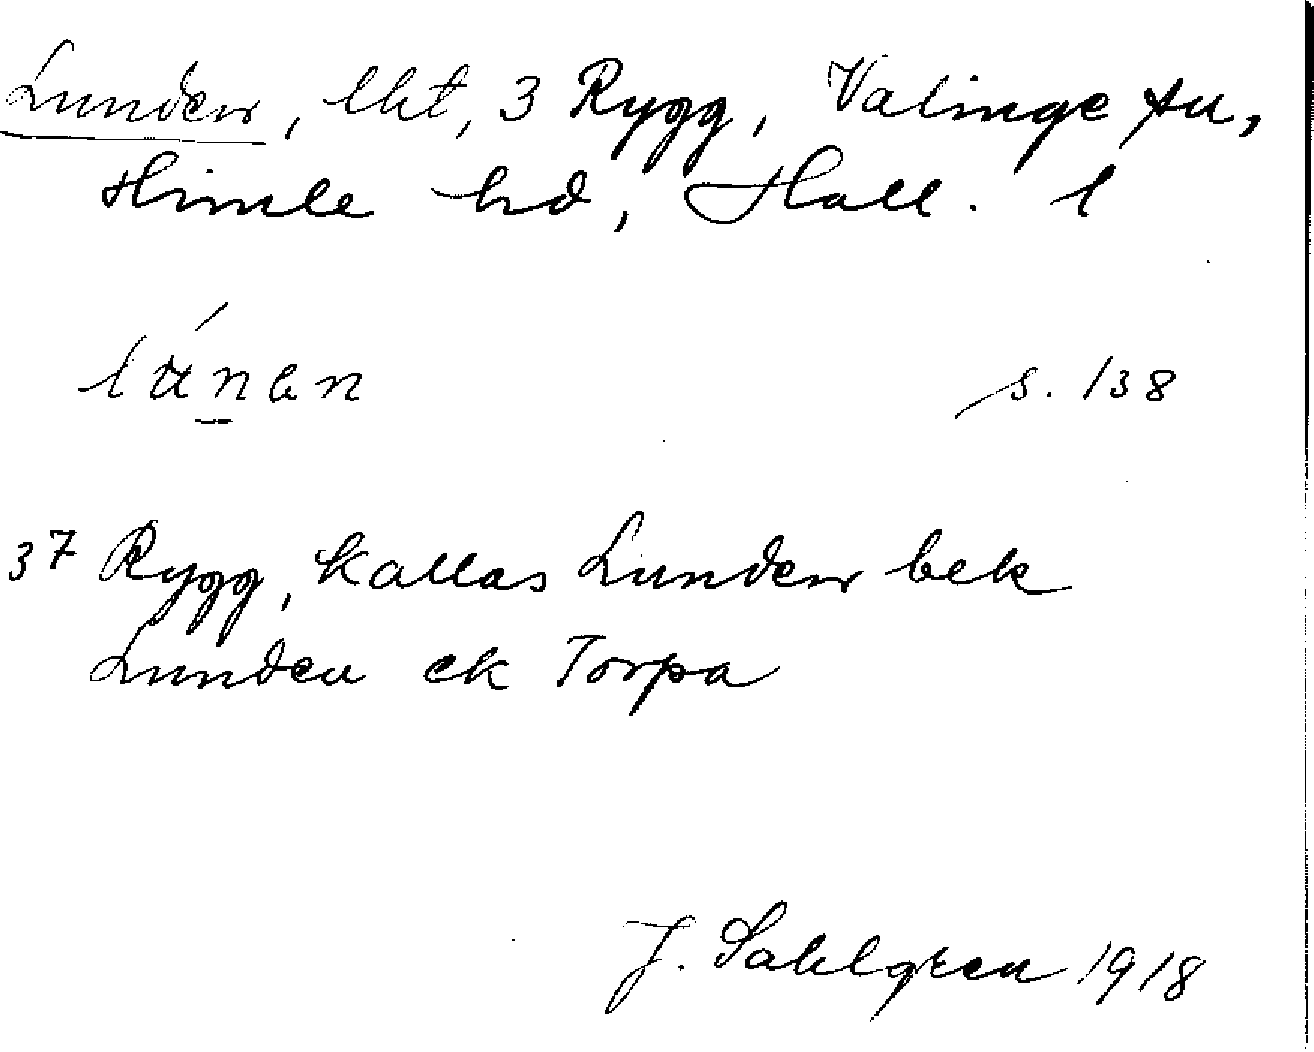 Lunden, lht, 3 Rygg, Valinge sn,
Himle hd, Hall. l
s. 138
3⁷ Rygg, kallas Lunden bek
Lunden ek Torpa
J. Sahlgren 1918